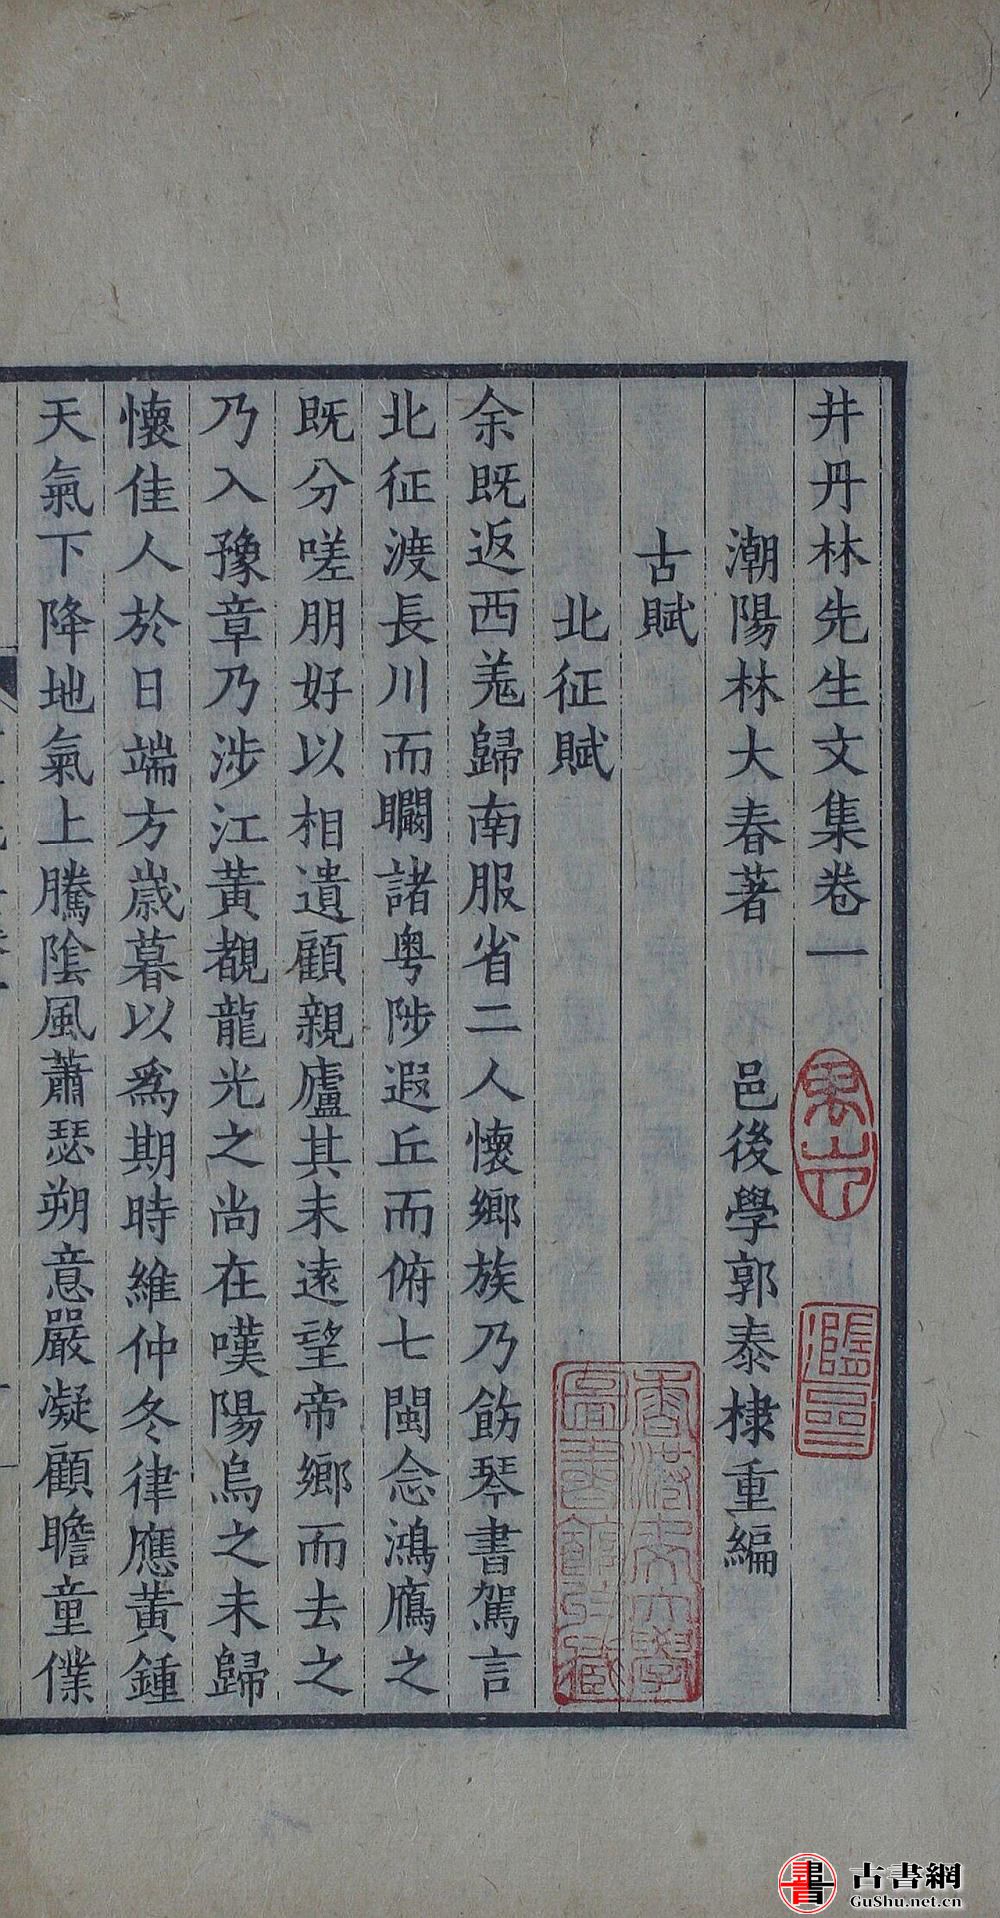 井丹林先生文集卷一
潮陽林大春著　邑後學郭泰棣重編
古賦
北征賦
余既返西羌歸南服省二人懷鄉族乃飭琴書駕言
北征渡長川而矙諸粤陟遐丘而俯七閩念鴻鴈之
既分嗟朋好以相遺顧親廬其未遠望帝鄉而去之
乃入豫章乃涉江黃覩龍光之尚在嘆陽烏之未歸
懷佳人於日端方歲暮以爲期時維仲冬律應黃鍾
天氣下降地氣上騰陰風蕭瑟朔意嚴凝顧瞻童僕
禺山人
香港中文大學
圖書館珍藏
古書網
GuShu.net.cn